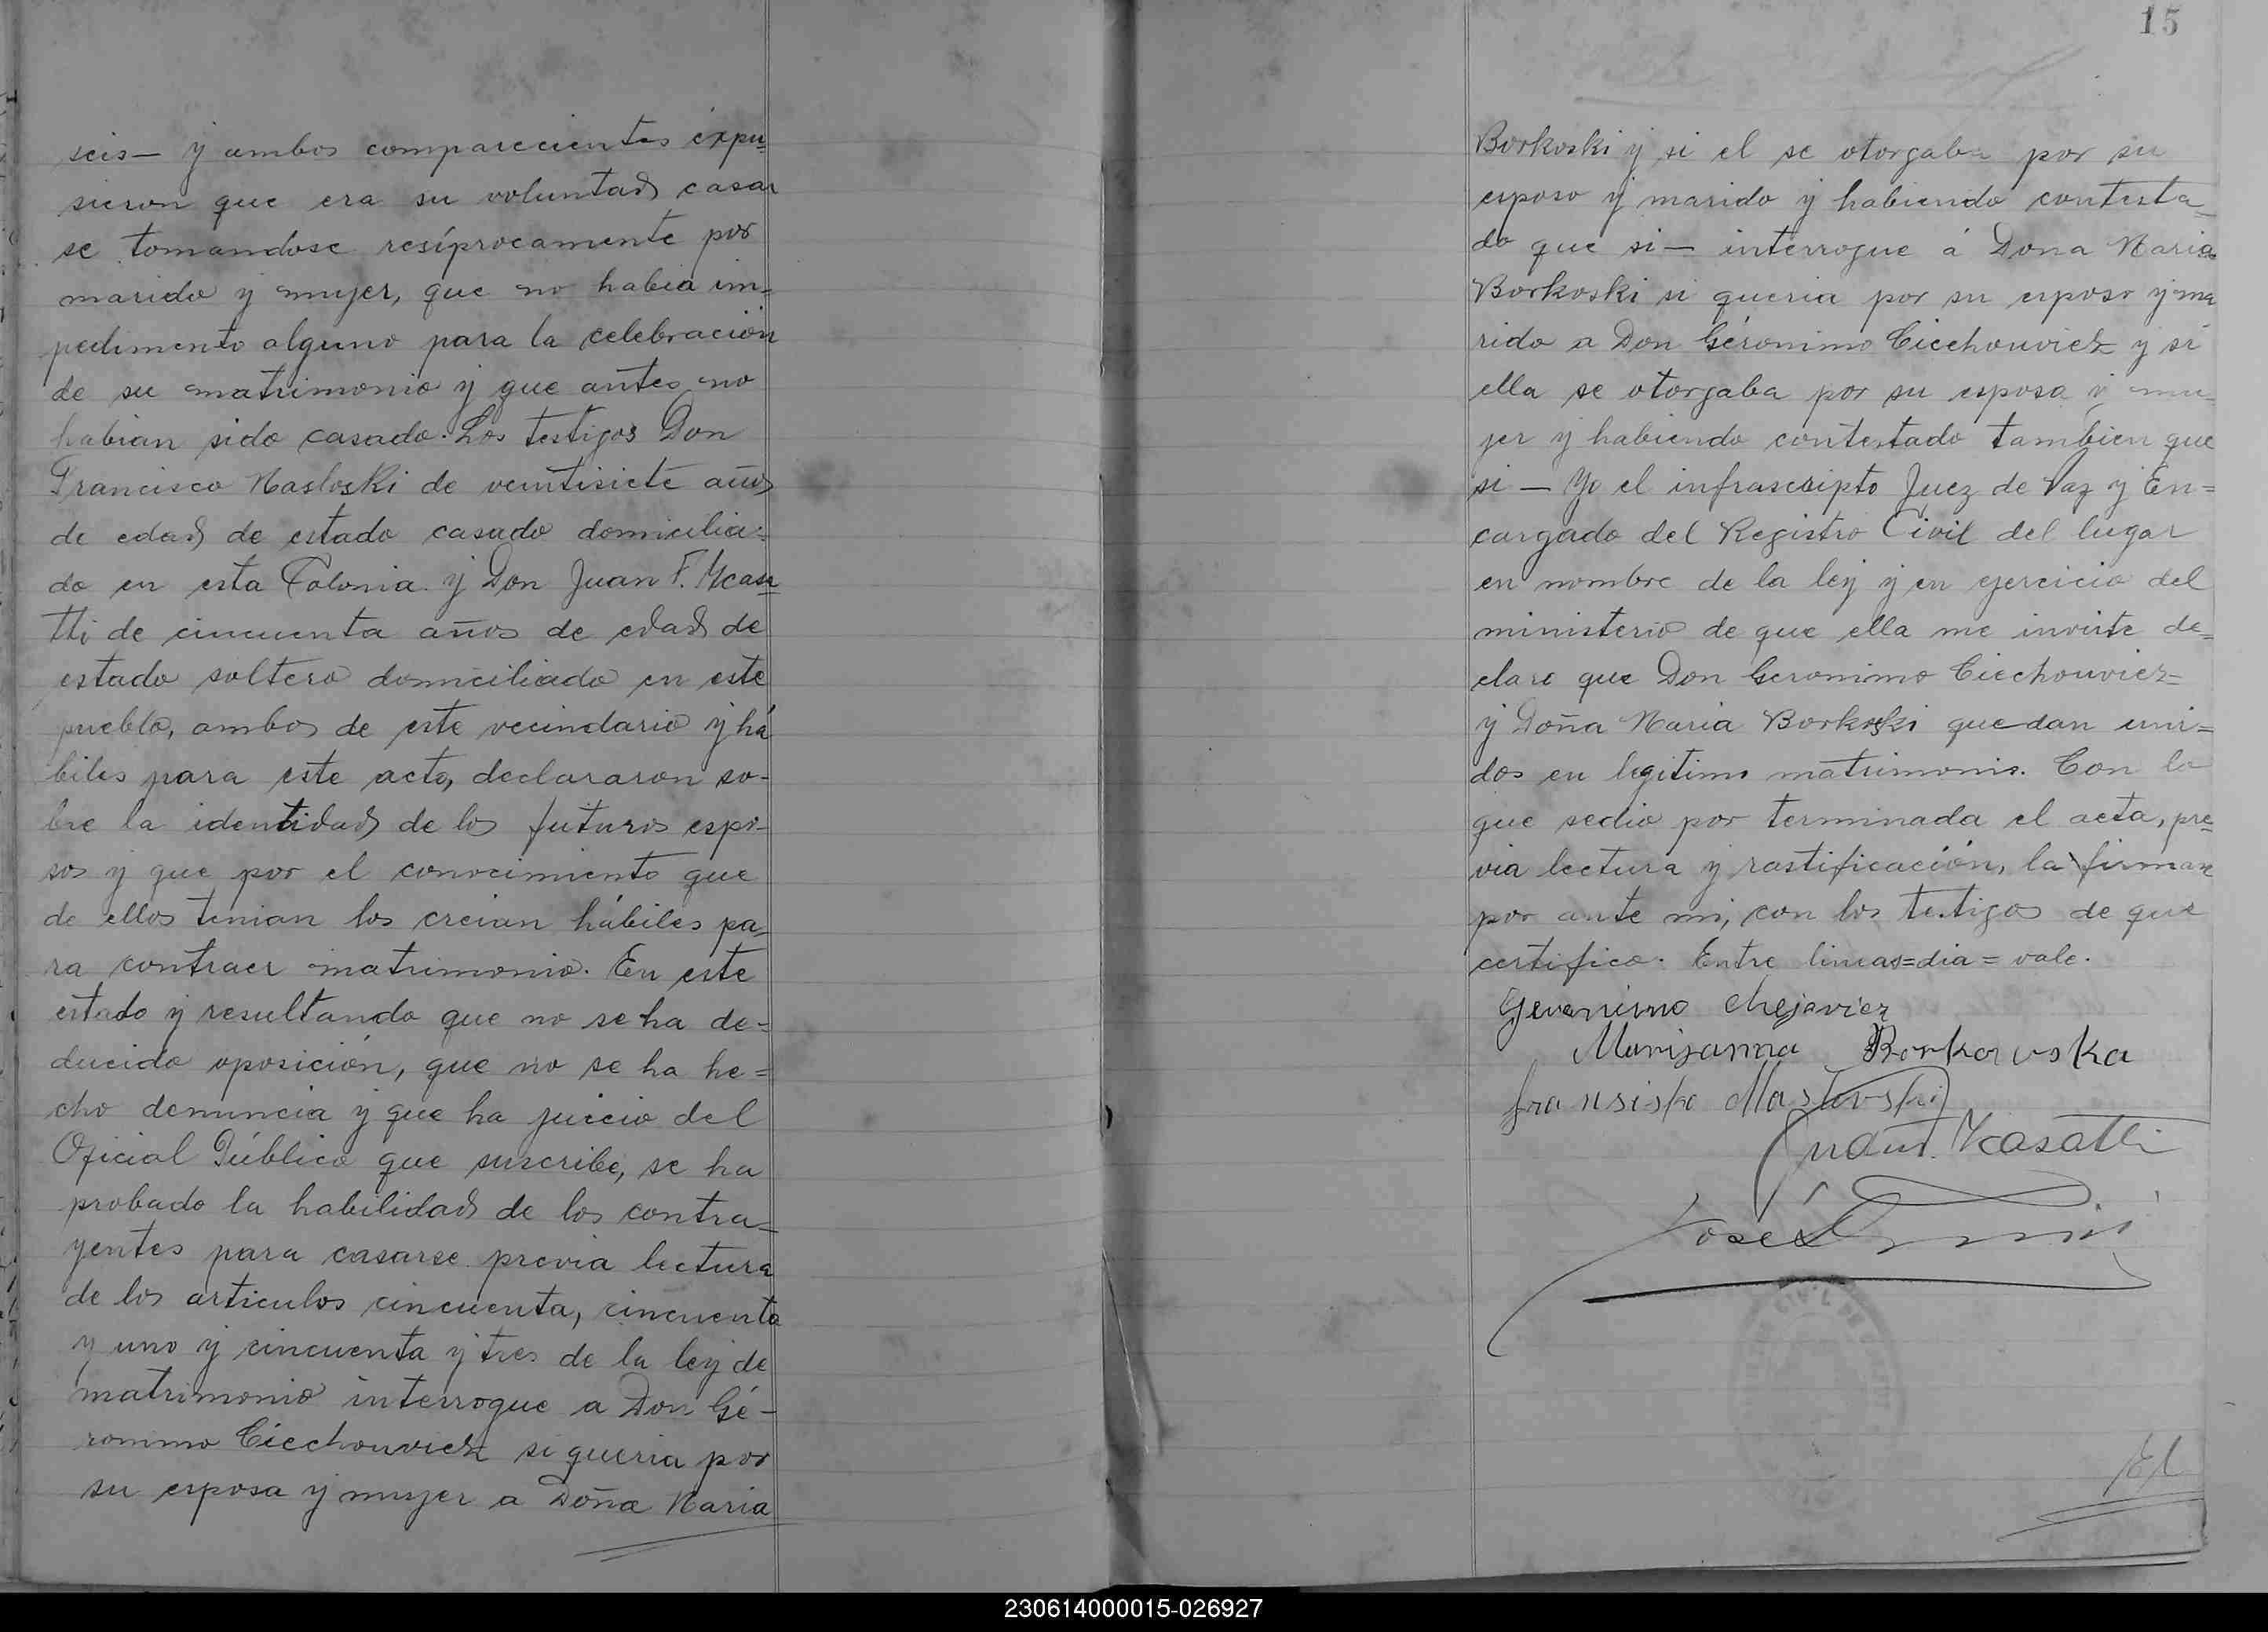 seis— y ambos comparecientes expu=
sieron que era su voluntad casar
se tomandose resíprocamente por
marido y mujer, que no habia im=
pedimento alguno para la celebración
de su matrimonio y que antes no
habian sido casado. Los testigos Don
Francisco Masloski de veintisiete años
de edad de estado casado domicilia=
do en esta Colonia y Don Juan F. Ycasa=
tti de cincuenta años de edad de
estado soltero domiciliado en este
pueblo, ambos de este vecindario y há
biles para este acto, declararon so-
bre la identidad de los futuros espo-
sos y que por el conocimiento que
de ellos tenian los creian hábiles pa=
ra contraer matrimonio. En este
estado y resultando que no se ha de=
ducido oposición, que no se ha he=
cho denuncia y que ha juicio del
Oficial Público que suscribe, se ha
probado la habilidad de los contra=
yentes para casarse previa lectura
de los articulos cincuenta, cincuenta
y uno y cincuenta y tres de la ley de
matrimonio interrogue a Don Gé-
ronimo Ciechouvicz si queria por
su esposa y mujer a Doña Maria
15
Borkoski y si el se otorgaba por su
esposo y marido y habiendo contesta=
do que si— interrogue á Dona Maria
Borkoski si queria por su esposo y ma
rido a Don Géronimo Ciechouvicz y si
ella se otorgaba por su esposa y mu=
jer y habiendo contestado tambien que
si— Yo el infrascripto Juez de Paz y En=
cargado del Registro Civil del lugar
en nombre de la ley y en ejercicio del
ministerio de que ella me inviste de=
claro que Don Geronimo Ciechouvicz=
y Doña Maria Borkoski quedan uni=
dos en legitimo matrimonio. Con lo
que sedio por terminada el acta, pre=
via lectura y rastificación, la firman
por ante mi, con los testigos de que
certifico. Entre lineas=dia=vale.
Geronimo Chejaviez
Marijanna Borkowska
Fransisko Maslovski
Juan F. Ycasatti
José
El
230614000015-026927